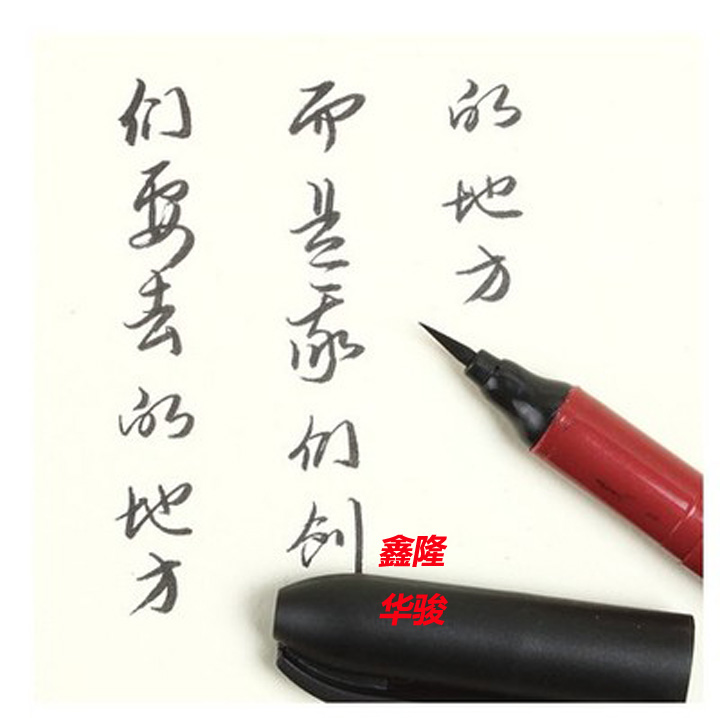 们要去的地方
而是我们创
的地方
鑫隆
华骏